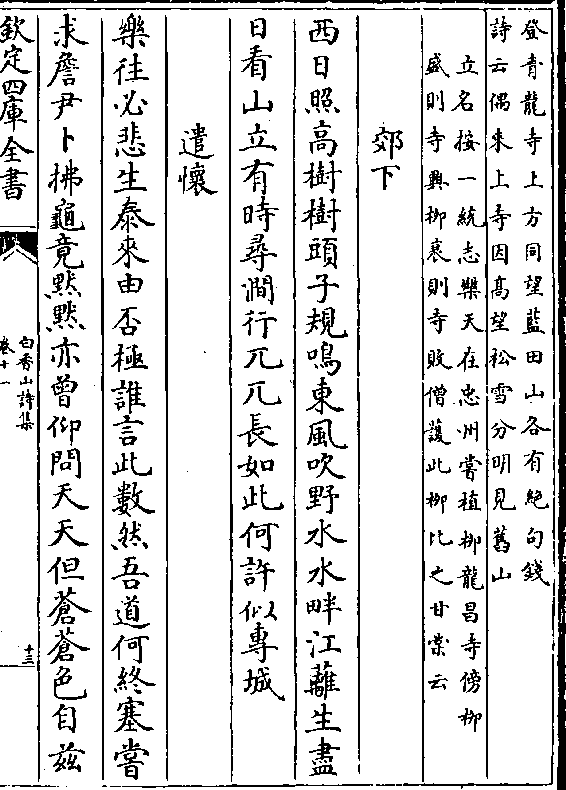 登青龍寺上方同望藍田山各有絶句錢
詩云偶來上寺因髙望松雪分明見舊山
立名按一統志樂天在忠州嘗植栁龍昌寺傍栁
盛則寺興栁衰則寺敗僧護此栁比之甘棠云
郊下
西日照高樹樹頭子規鳴東風吹野水水畔江蘺生盡
日看山立有時尋澗行兀兀長如此何許似專城
遣懷
樂往必悲生泰來由否極誰言此數然吾道何終塞嘗
求詹尹卜拂龜竟黙黙亦曾仰問天天但蒼蒼色自兹
欽定四庫全書
白香山詩集
卷十一
十三